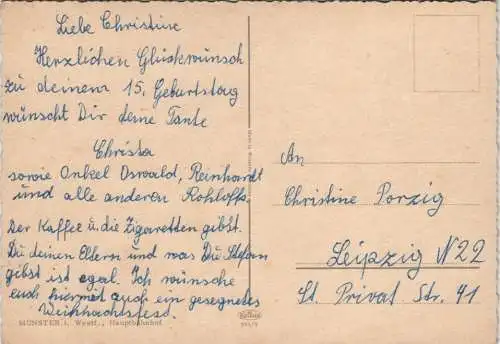 Liebe Christine
Herzlichen Glückwünsch
zu deinem 15. Geburtstag
wünscht Dir deine Tante
Christa
sowie Onkel Oswald, Reinhardt
und alle anderen Rohloffs.
Der Kaffee u. die Zigaretten gibst
Du deinen Eltern und was Du Stefan
gibst ist egal. Ich wünsche
euch hiermit auch ein gesegnetes
Weihnachtsfest.
MÜNSTER i. Westf., Hauptbahnhof
An
Christine Porzig
Leipzig N22
St. Privat Str. 41